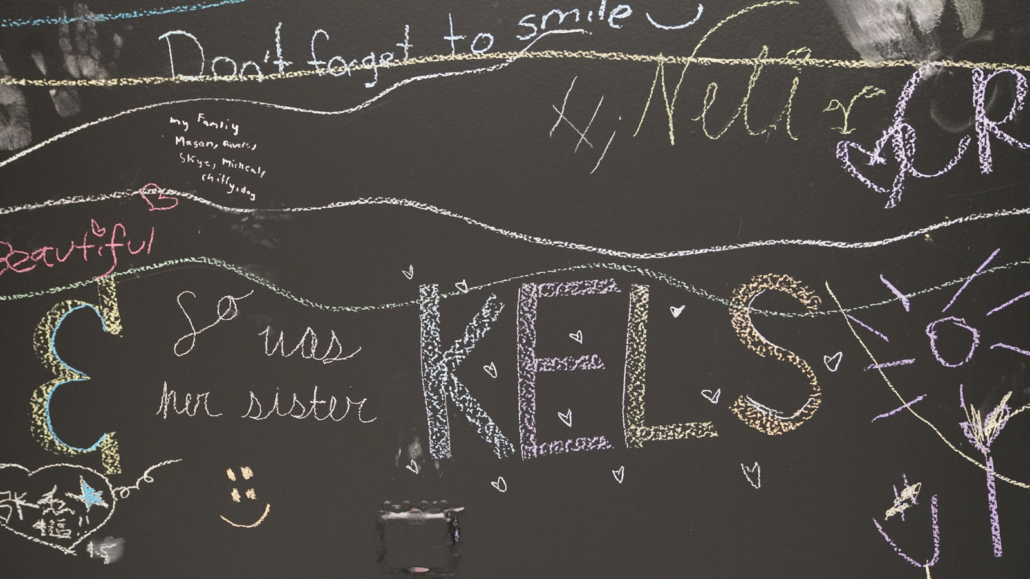 Don't forget to smile
Hi Neti
CR
my Family
Mason, River,
Skye, Micheal,
chilly, dog
Beautiful
So was
her sister
KELS